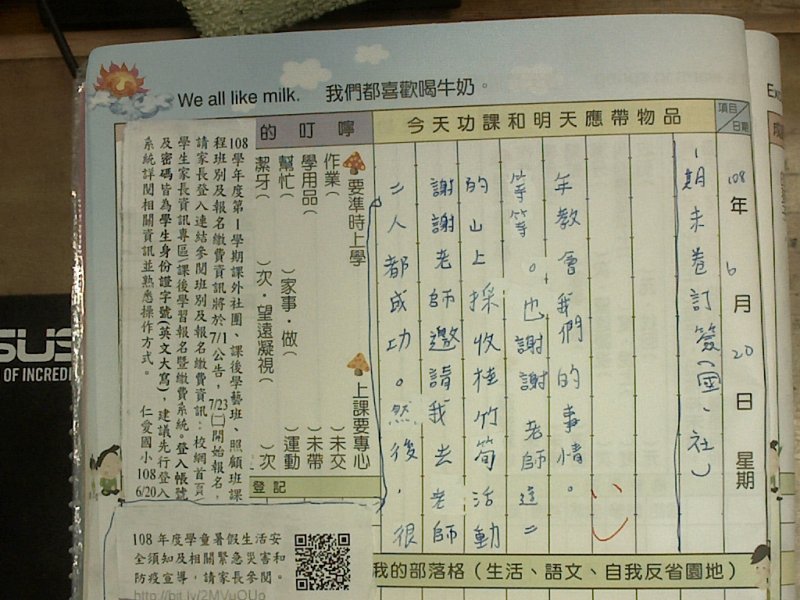 We all like milk. 我們都喜歡喝牛奶。
項目
日期
今天功課和明天應帶物品
的叮嚀
108年6月20日星期
1期末卷訂簽(國、社)
年教會我們的事情。
等等。也謝謝老師這二
的山上採收桂竹筍活動
謝謝老師邀請我去老師
二人都成功。然後,很
要準時上學
上課要專心
作業(
)未交
學用品(
)未帶
幫忙(
)家事·做(
)運動
潔牙(
)次·望遠凝視(
)次
登記
108學年度第1學期課外社團、課後學藝班、照顧班課
程班別及報名繳費資訊將於7/1公告,7/23(二)開始報名,
請家長登入連結參閱班別及報名繳費資訊:校網首頁/
學生家長資訊專區/課後學習報名暨繳費系統。登入帳號
及密碼皆為學生身份證字號(英文大寫),建議先行登入
系統詳閱相關資訊並熟悉操作方式。 仁愛國小 108
6/20
108年度學童暑假生活安
全須知及相關緊急災害和
防疫宣導,請家長參閱。
http://bit.ly/2MVuOUo
我的部落格(生活、語文、自我反省園地)
SUS
OF INCREDI